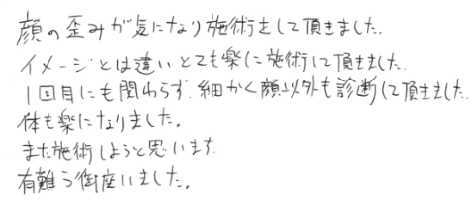 顔の歪みが気になり施術をして頂きました。
イメージとは違いとても楽に施術して頂きました。
1回目にも関わらず、細かく顔以外も診断して頂きました。
体も楽になりました。
また施術しようと思います。
有難う御座いました。